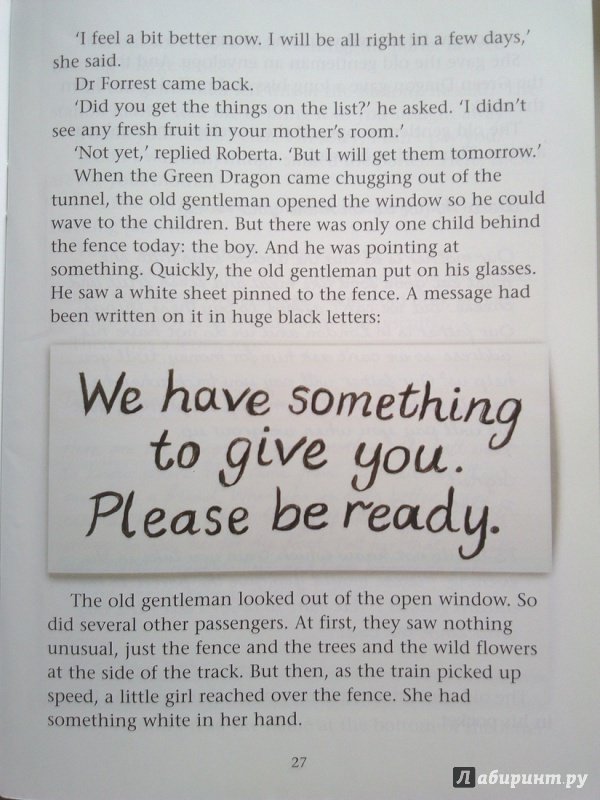 ‘I feel a bit better now. I will be all right in a few days,’
she said.
Dr Forrest came back.
‘Did you get the things on the list?’ he asked. ‘I didn’t
see any fresh fruit in your mother’s room.’
‘Not yet,’ replied Roberta. ‘But I will get them tomorrow.’
When the Green Dragon came chugging out of the
tunnel, the old gentleman opened the window so he could
wave to the children. But there was only one child behind
the fence today: the boy. And he was pointing at
something. Quickly, the old gentleman put on his glasses.
He saw a white sheet pinned to the fence. A message had
been written on it in huge black letters:
We have something
to give you.
Please be ready.
The old gentleman looked out of the open window. So
did several other passengers. At first, they saw nothing
unusual, just the fence and the trees and the wild flowers
at the side of the track. But then, as the train picked up
speed, a little girl reached over the fence. She had
something white in her hand.
27
Лабиринт.ру